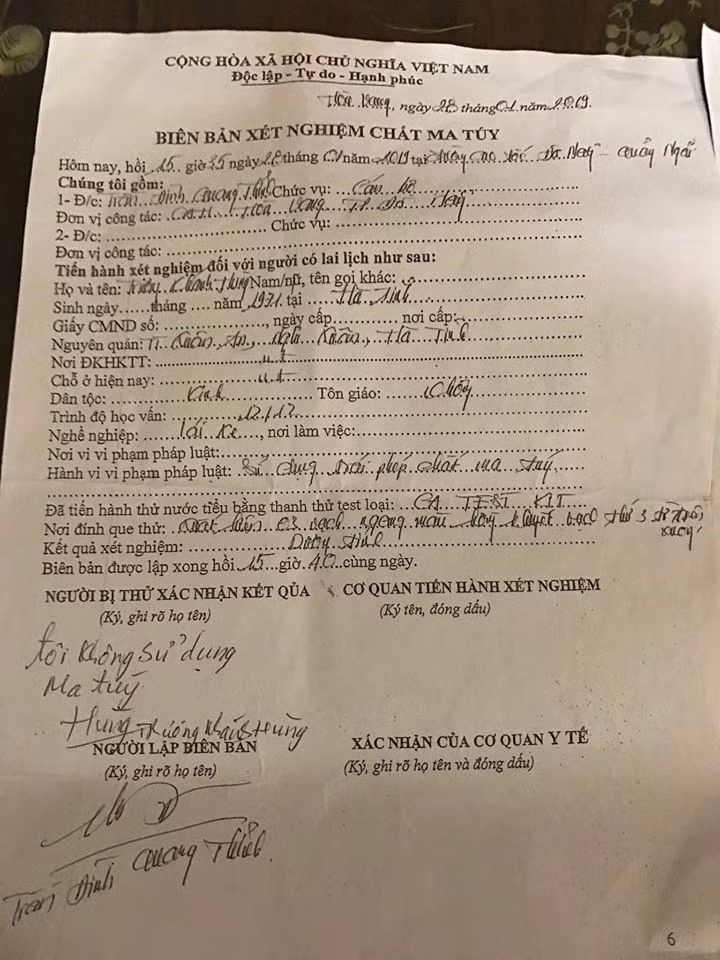 CỘNG HÒA XÃ HỘI CHỦ NGHĨA VIỆT NAM
Độc lập - Tự do - Hạnh phúc
Hòa Vang, ngày 28 tháng 01 năm 2019.
BIÊN BẢN XÉT NGHIỆM CHẤT MA TÚY
Hôm nay, hồi 15 giờ 35 ngày 28 tháng 01 năm 2019 tại đường cao tốc Đà Nẵng - Quảng Ngãi
Chúng tôi gồm:
1- Đ/c: Trần Đình Quang Thịnh Chức vụ: Cán bộ
Đơn vị công tác: CAH Hòa Vang TP Đà Nẵng
2- Đ/c: Chức vụ:
Đơn vị công tác:
Tiến hành xét nghiệm đối với người có lai lịch như sau:
Họ và tên: Trương Khánh Hùng Nam/nữ, tên gọi khác:
Sinh ngày tháng năm 1971 tại Hà Tĩnh
Giấy CMND số: , ngày cấp nơi cấp:
Nguyên quán: TT Xuân An, Nghi Xuân, Hà Tĩnh
Nơi ĐKHKTT: nt
Chỗ ở hiện nay: nt
Dân tộc: Kinh Tôn giáo: Không
Trình độ học vấn: 12/12
Nghề nghiệp: lái xe, nơi làm việc:
Nơi vi vi phạm pháp luật:
Hành vi vi phạm pháp luật: Sử dụng trái phép chất ma túy
Đã tiến hành thử nước tiểu bằng thanh thử test loại: TEST KIT
Nơi đính que thử: xuất hiện 03 vạch ngang màu hồng khuyết vạch thứ 3 từ trên xuống
Kết quả xét nghiệm: Dương tính
Biên bản được lập xong hồi 15 giờ 40 cùng ngày.
NGƯỜI BỊ THỬ XÁC NHẬN KẾT QỦA CƠ QUAN TIẾN HÀNH XÉT NGHIỆM
(Ký, ghi rõ họ tên) (Ký tên, đóng dấu)
tôi không sử dụng
Ma túy
Hùng Trương Khánh Hùng
NGƯỜI LẬP BIÊN BẢN XÁC NHẬN CỦA CƠ QUAN Y TẾ
(Ký, ghi rõ họ tên) (Ký, ghi rõ họ tên và đóng dấu)
Trần Đình Quang Thịnh
6